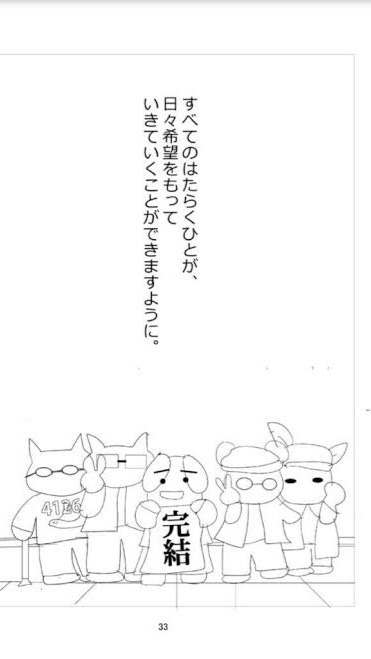 すべてのはたらくひとが、
日々希望をもって
いきていくことができますように。
4126
完結
33